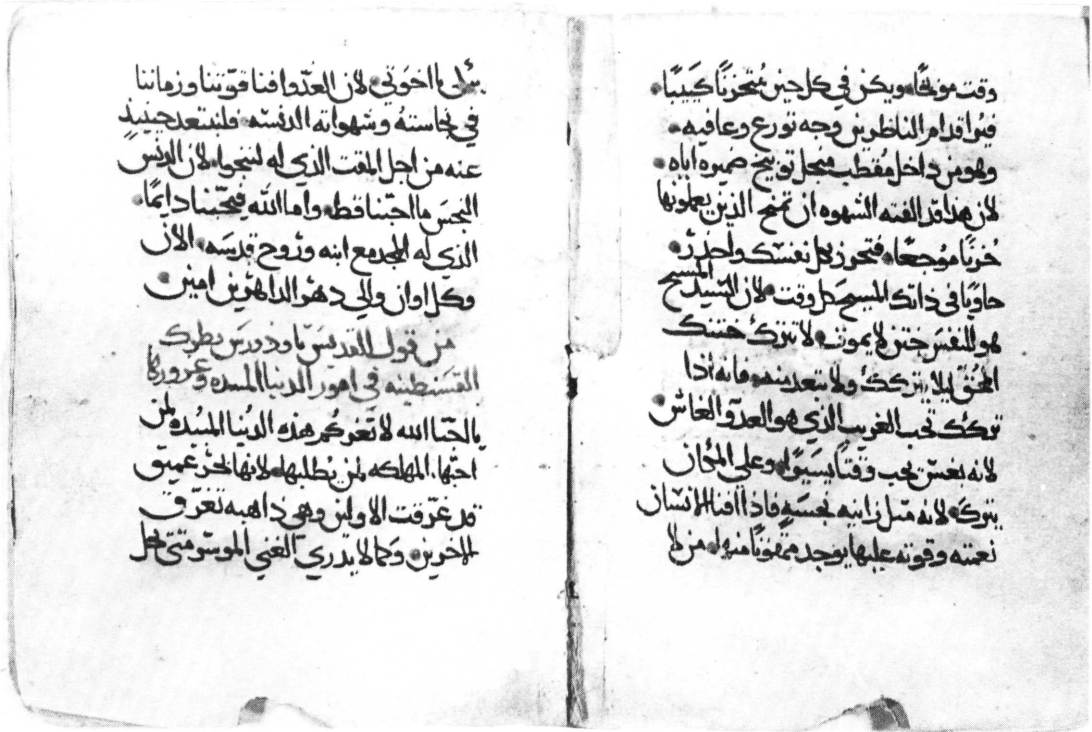 وقت موبخًا، ويكن في كل حين متحزنًا كييبًا،
قدام الناظرين وجه تورع وعافيه،
وهو من داخل مقطب منجل توبيخ ضميره اياه
لان هذا قد الفته الشهوه ان تمنح الذين يعملونها
حزنًا موجعًا، فتحرز بكل نفسك واحدر
حاويًا في ذاتك المسيح كل وقت، لان السيد المسيح
هو للنفس ختن لا يموت، لا تترك ختنك
المحق ليلا يتركك ولا تبعد منه، فانه اذا
تركك تحب الغريب الذي هو العدو الغاش
لانه بغش يحب وقتًا يسيرًا، وعلى المكان
يتركه لانه متل زانيه نجسه، فاذا افنا الانسان
نعمته وقوته عليها يوجد ممقوتًا منها، من لا
يا اخوتي، لان العدو افنا قوتنا وزماننا
في نجاسته وشهواته الدنسه، فلنبتعد حينيد
عنه من اجل المقت الذي له لننجوا، لان الدنس
النجس ما احبنا قط، واما الله فيحبنا دايمًا،
الذي له المجد مع ابنه وروح قدسه، الان
وكل اوان والي دهر الداهرين امين
من قول القديس تاودورس بطرك
القسطنطينه في امور الدنيا المفسده وغرورها
يا احبا الله لا تغركم هذه الدنيا المفسده لمن
احبها، المهلكه لمن يطلبها، لانها بحر عميق
قد غرقت الاولين وهي داهبه تغرق
الاخرين، وكما لا يدري الغني الموسر متى يحل